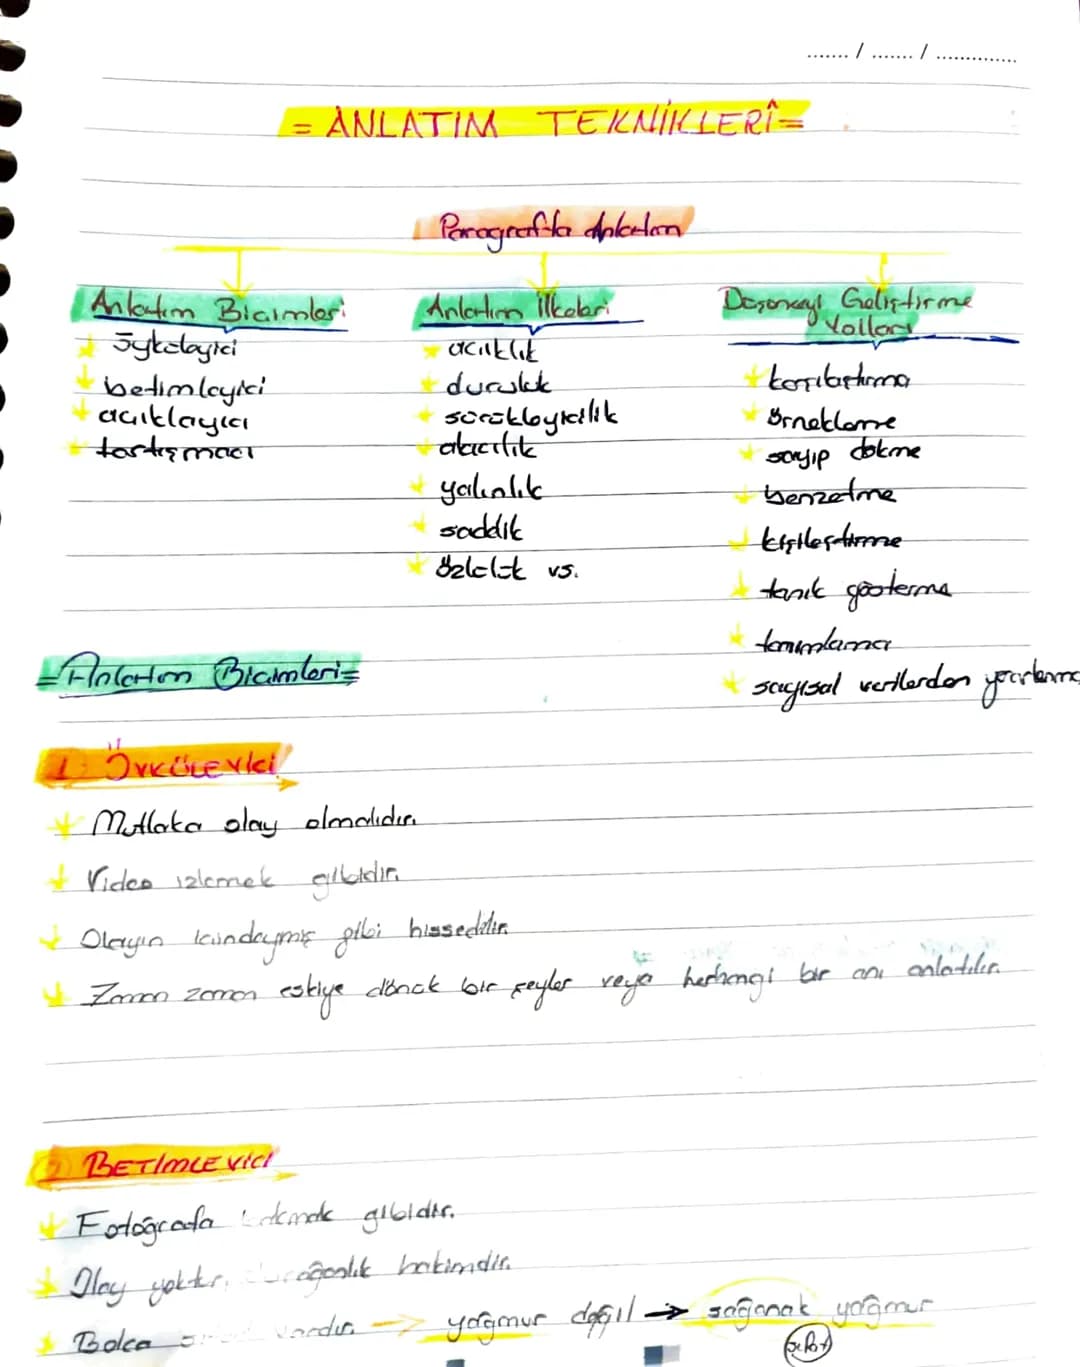 ....... / ....... / ..............
= ANLATIM TEKNİKLERİ =
Paragrafta Anlatım
Anlatım Biçimleri
öyküleyici
betimleyici
açıklayıcı
tartışmacı
Anlatım İlkeleri
açıklık
duruluk
sürükleyicilik
akıcılık
yalınlık
saddlk
özlülük vs.
Düşünceyi Geliştirme
Yolları
karşılaştırma
örnekleme
sayıp dökme
benzetme
kişileştirme
tanık gösterme
tanımlama
sayısal verilerden yararlanma
= Anlatım Biçimleri =
1- Öyküleyici
Mutlaka olay olmalıdır.
Video izlemek gibidir.
Olayın içindeymiş gibi hissedilir.
Zaman zaman eskiye dönük bir şeyler veya herhangi bir anı anlatılır.
2 BETİMLEYİCİ
Fotoğrafa bakmak gibidir.
Olay yoktur, durağanlık hakimdir.
Bolca vardır → yağmur değil → sağanak yağmur